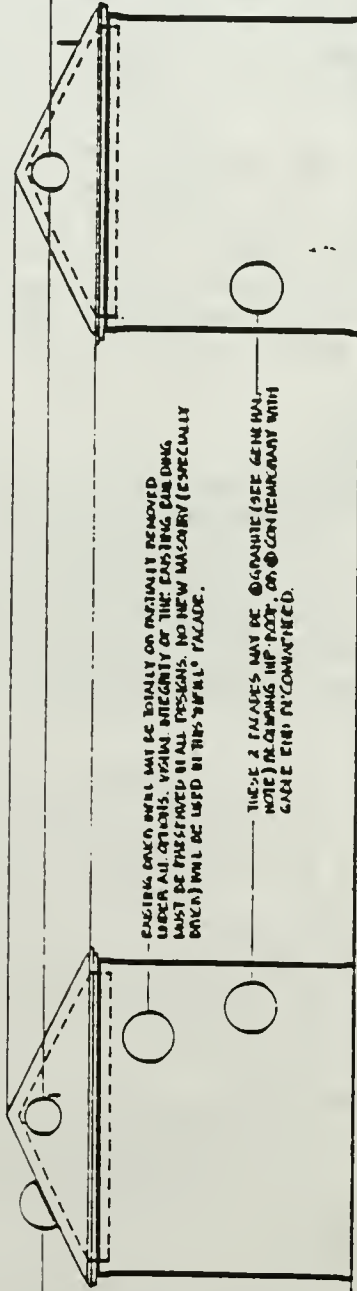 EXISTING BRICK INFILL MAY BE TOTALLY OR PARTIALLY REMOVED
UNDER ALL OPTIONS. VISUAL INTEGRITY OF THE EXISTING BUILDING
MUST BE PRESERVED IN ALL DESIGNS. NO NEW MASONRY (ESPECIALLY
BRICK) WILL BE USED IN THIS "INFILL" FACADE.
THESE 2 FACADES MAY BE ① GRANITE (SEE GENERAL
NOTE) REQUIRING HIP ROOF, OR ② CONTEMPORARY WITH
GABLE END RECOMMENDED.